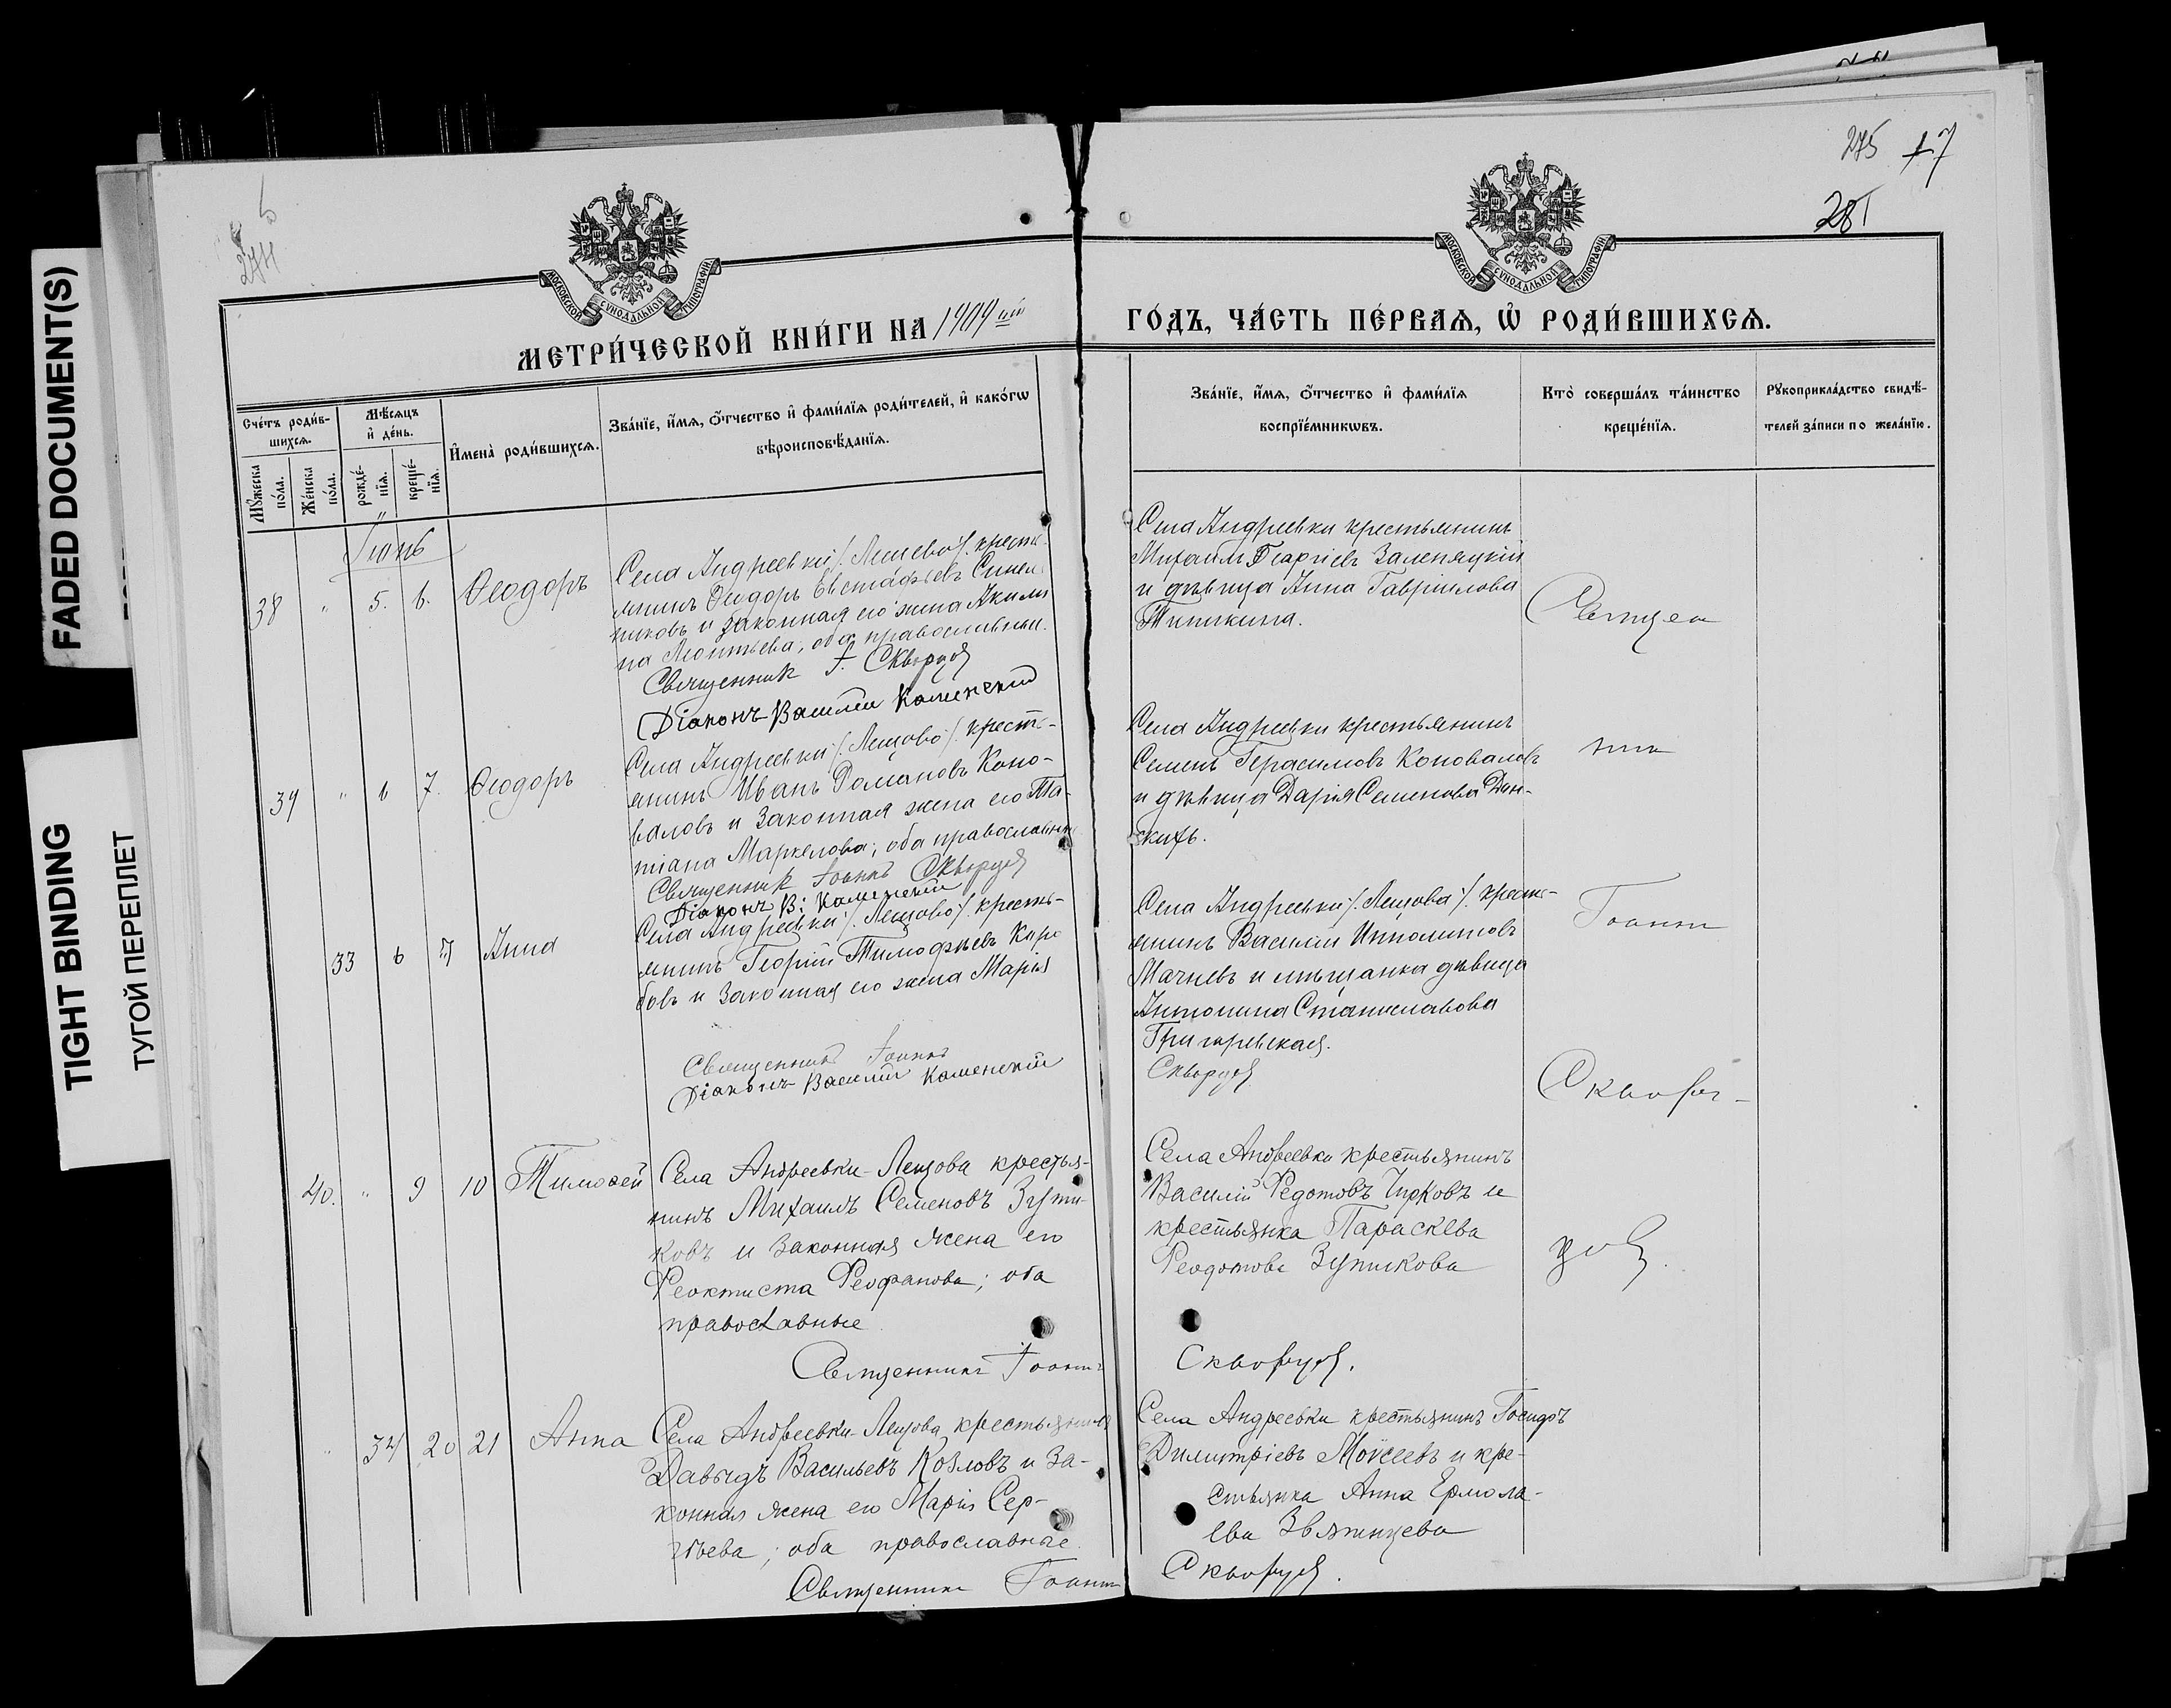 FADED DOCUMENT(S)
TIGHT BINDING
ТУГОЙ ПЕРЕПЛЕТ
274
275 17
281
МОСКОВСКОЙ СѴНОДАЛЬНОЙ ТИПОГРАФІИ
МОСКОВСКОЙ СѴНОДАЛЬНОЙ ТИПОГРАФІИ
МЕТРИ́ЧЕСКОЙ КНИ́ГИ НА 1909ый
ГО́ДЪ, ЧА́СТЬ ПЕ́РВАѦ, Ѡ҆ РОДИ́ВШИХСѦ.
Сче́тъ роди́в-
шихсѧ.
Мꙋ́жеска по́ла.
Же́нска по́ла.
Мѣ́сѧцъ
и҆ де́нь.
рожде́-
нїѧ.
креще́-
нїѧ.
И҆мена̀ роди́вшихсѧ.
Зва́нїе, и҆́мѧ, ѻ҆́тчество и҆ фами́лїѧ роди́телей, и҆ како́гѡ
вѣроисповѣ́данїѧ.
Зва́нїе, и҆́мѧ, ѻ҆́тчество и҆ фами́лїѧ
воспрїе́мникѡвъ.
Кто̀ соверша́лъ та́инство
креще́нїѧ.
Рꙋкоприкла́дство свидѣ́-
телей за́писи по жела́нїю.
Іюнь
38 " 5. 6. Ѳеодоръ
Села Андреевки /. Лещево /. кресть-
янинъ Ѳеодоръ Евстафьевъ Синель
никовъ и законная его жена Акили
на Леонтьева, оба православные.
Священник І. Скворцов
Діаконъ Василій Каменскій
Села Андреевки крестьянинъ
Михаилъ Георгіевъ Заленяцкій
и дѣвица Анна Гавріилова
Тишкина.
Священ
39 " 6 7. Ѳеодоръ
Села Андреевки /. Лещово /. кресть-
янинъ Иванъ Романовъ Коно-
валовъ и законная жена его Та-
тіана Маркелова, оба православные
Священник Іоаннъ Скворцов
Діаконъ В: Каменскій
Села Андреевки крестьянинъ
Семенъ Герасимовъ Коноваловъ
и дѣвица Дарія Семенова Дон-
скихъ.
ник
33 6 7 Анна
Села Андреевки /. Лещово /. кресть-
янинъ Георгій Тимофѣевъ Каре
бовъ и законная его жена Марія
Священник Іоаннъ
Діаконъ Василій Каменскій
Села Андреевки /. Лещова /. кресть-
янинъ Василій Ипполитовъ
Мачневъ и мѣщанка дѣвица
Антонина Станиславова
Скворцов
Іоанн
Сквор-
40. " 9 10 Тимоѳей
Села Андреевки-Лещова крестья-
нинъ Михаилъ Семеновъ Зупи-
ковъ и законная жена его
Феоктиста Феофанова; оба
православные
Священникъ Іоаннъ
Села Андреевки крестьянинъ
Василій Федотовъ Чирковъ и
крестьянка Параскева
Феодотова Зупикова
Скворцов.
цов.
" 34 20 21 Анна
Села Андреевки-Лещова крестьянинъ
Давыдъ Васильевъ Козловъ и за-
конная жена его Марія Сер-
гѣева; оба православные.
Священникъ Іоанн
Села Андреевки крестьянинъ Іосифъ
Димитріевъ Моѵсеевъ и кре-
стьянка Анна Ермола-
ева Звягинцева
Скворцов.